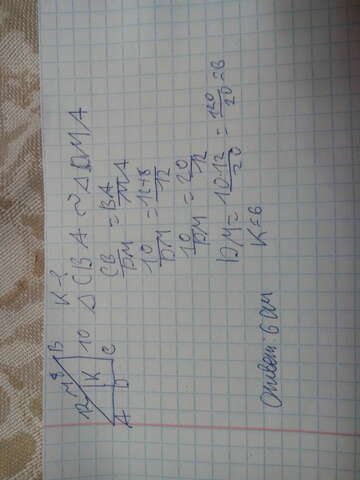 K-?
12 M 8 B
K 10
A D C
△CBA ~ △DMA
CB/DM = BA/MA
10/DM = 12+8/12
10/DM = 20/12
DM = 10·12/20 = 120/20 = 6
K = 6
Ответ: 6 см